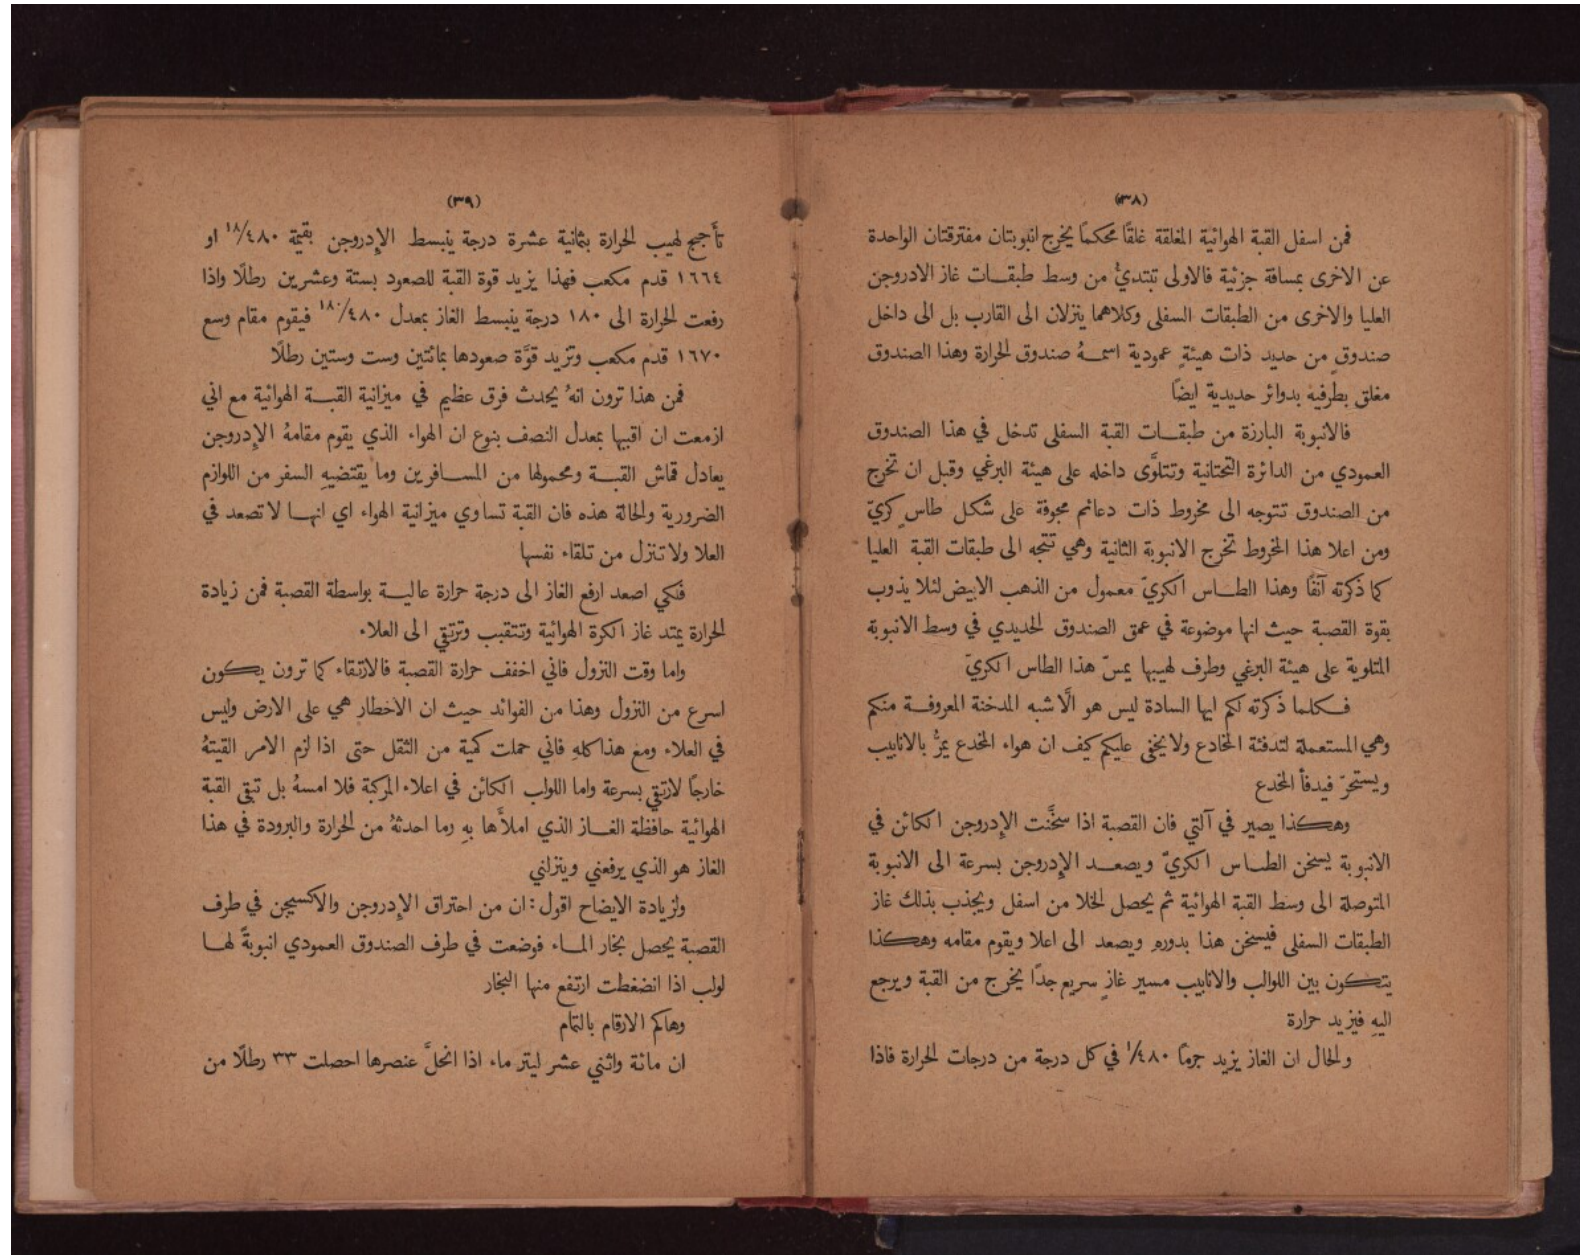 (٣٨)
فمن اسفل القبة الهوائية المغلقة غلقًا محكمًا يخرج انبوبتان مفترقتان الواحدة
عن الاخرى بمسافة جزئية فالاولى تبتدئُ من وسط طبقات غاز الادروجن
العليا والاخرى من الطبقات السفلى وكلاهما ينزلان الى القارب بل الى داخل
صندوقٍ من حديد ذات هيئةٍ عمودية اسمهُ صندوق الحرارة وهذا الصندوق
مغلق بطرفيه بدوائر حديدية ايضًا
فالانبوبة البارزة من طبقات القبة السفلى تدخل في هذا الصندوق
العمودي من الدائرة التحتانية وتتلوَّى داخله على هيئة البرغي وقبل ان تخرج
من الصندوق تتوجه الى مخروط ذات دعائم مجوفة على شكل طاسٍ كرويّ
ومن اعلا هذا المخروط تخرج الانبوبة الثانية وهي تتجه الى طبقات القبة العليا
كما ذكرته آنفًا وهذا الطاس الكريّ معمول من الذهب الابيض لئلا يذوب
بقوة القصبة حيث انها موضوعة في عمق الصندوق الحديدي في وسط الانبوبة
المتلوية على هيئة البرغي وطرف لهيبها يمسّ هذا الطاس الكريّ
فكلما ذكرته لكم ايها السادة ليس هو الَّا شبه المدخنة المعروفة منكم
وهي المستعملة لتدفئة المخادع ولا يخفى عليكم كيف ان هواء المخدع يمرُّ بالانابيب
ويستحرّ فيدفأ المخدع
وهكذا يصير في آلتي فان القصبة اذا سخَّنت الإِدروجن الكائن في
الانبوبة يسخن الطاس الكريّ ويصعد الإِدروجن بسرعة الى الانبوبة
المتوصلة الى وسط القبة الهوائية ثم يحصل الخلا من اسفل ويجذب بذلك غاز
الطبقات السفلى فيسخن هذا بدورهِ ويصعد الى اعلا ويقوم مقامه وهكذا
يتكون بين اللوالب والانابيب مسير غازٍ سريع جدًا يخرج من القبة ويرجع
اليهِ فيزيد حرارة
والحال ان الغاز يزيد جرمًا ١/٤٨٠ في كل درجة من درجات الحرارة فاذا
(٣٩)
تأَجيج لهيب الحرارة بثمانية عشرة درجة ينبسط الإِدروجن بقيمة ١٨/٤٨٠ او
١٦٦٤ قدم مكعب فهذا يزيد قوة القبة للصعود بستة وعشرين رطلًا واذا
رفعت الحرارة الى ١٨٠ درجة ينبسط الغاز بمعدل ١٨٠/٤٨٠ فيقوم مقام وسع
١٦٧٠ قدم مكعب وتزيد قوَّة صعودها بمائتين وست وستين رطلًا
فمن هذا ترون انهُ يحدث فرق عظيم في ميزانية القبة الهوائية مع اني
ازمعت ان اقبيها بمعدل النصف بنوع ان الهواء الذي يقوم مقامهُ الإِدروجن
يعادل قماش القبة ومحمولها من المسافرين وما يقتضيهِ السفر من اللوازم
الضرورية والحالة هذه فان القبة تساوي ميزانية الهواء اي انها لا تصعد في
العلا ولا تنزل من تلقاء نفسها
فلكي اصعد ارفع الغاز الى درجة حرارة عالية بواسطة القصبة فمن زيادة
الحرارة يمتد غاز الكرة الهوائية وتتقبب وترتقي الى العلاء
واما وقت النزول فاني اخفف حرارة القصبة فالارتقاء كما ترون يكون
اسرع من النزول وهذا من الفوائد حيث ان الأخطار هي على الارض وليس
في العلاء ومع هذا كلهِ فاني حملت كمية من الثقل حتى اذا لزم الامر القيتهُ
خارجًا لارتقي بسرعة واما اللولب الكائن في اعلاء المركبة فلا امسهُ بل تبقى القبة
الهوائية حافظة الغاز الذي املأَها بهِ وما احدثهُ من الحرارة والبرودة في هذا
الغاز هو الذي يرفعني وينزلني
ولزيادة الايضاح اقول : ان من احتراق الإِدروجن والاكسيجن في طرف
القصبة يحصل بخار الماء فوضعت في طرف الصندوق العمودي انبوبةً لها
لولب اذا انضغطت ارتفع منها البخار
وهاكم الارقام بالتمام
ان مائة واثني عشر ليتر ماء اذا انحلَّ عنصرها احصلت ٣٣ رطلًا من